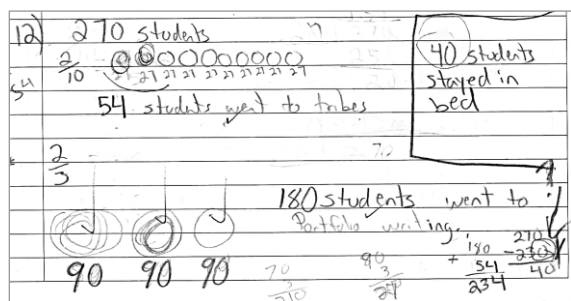 12) 270 students
2/10
27 27 27 27 27 27 27 27 27 27
54
54 students went to tribes
40 students
stayed in
bed
2/3
180 students went to
Portfolio writing.
90 90 90
90
3
270
180
+ 54
234
270
- 230
40